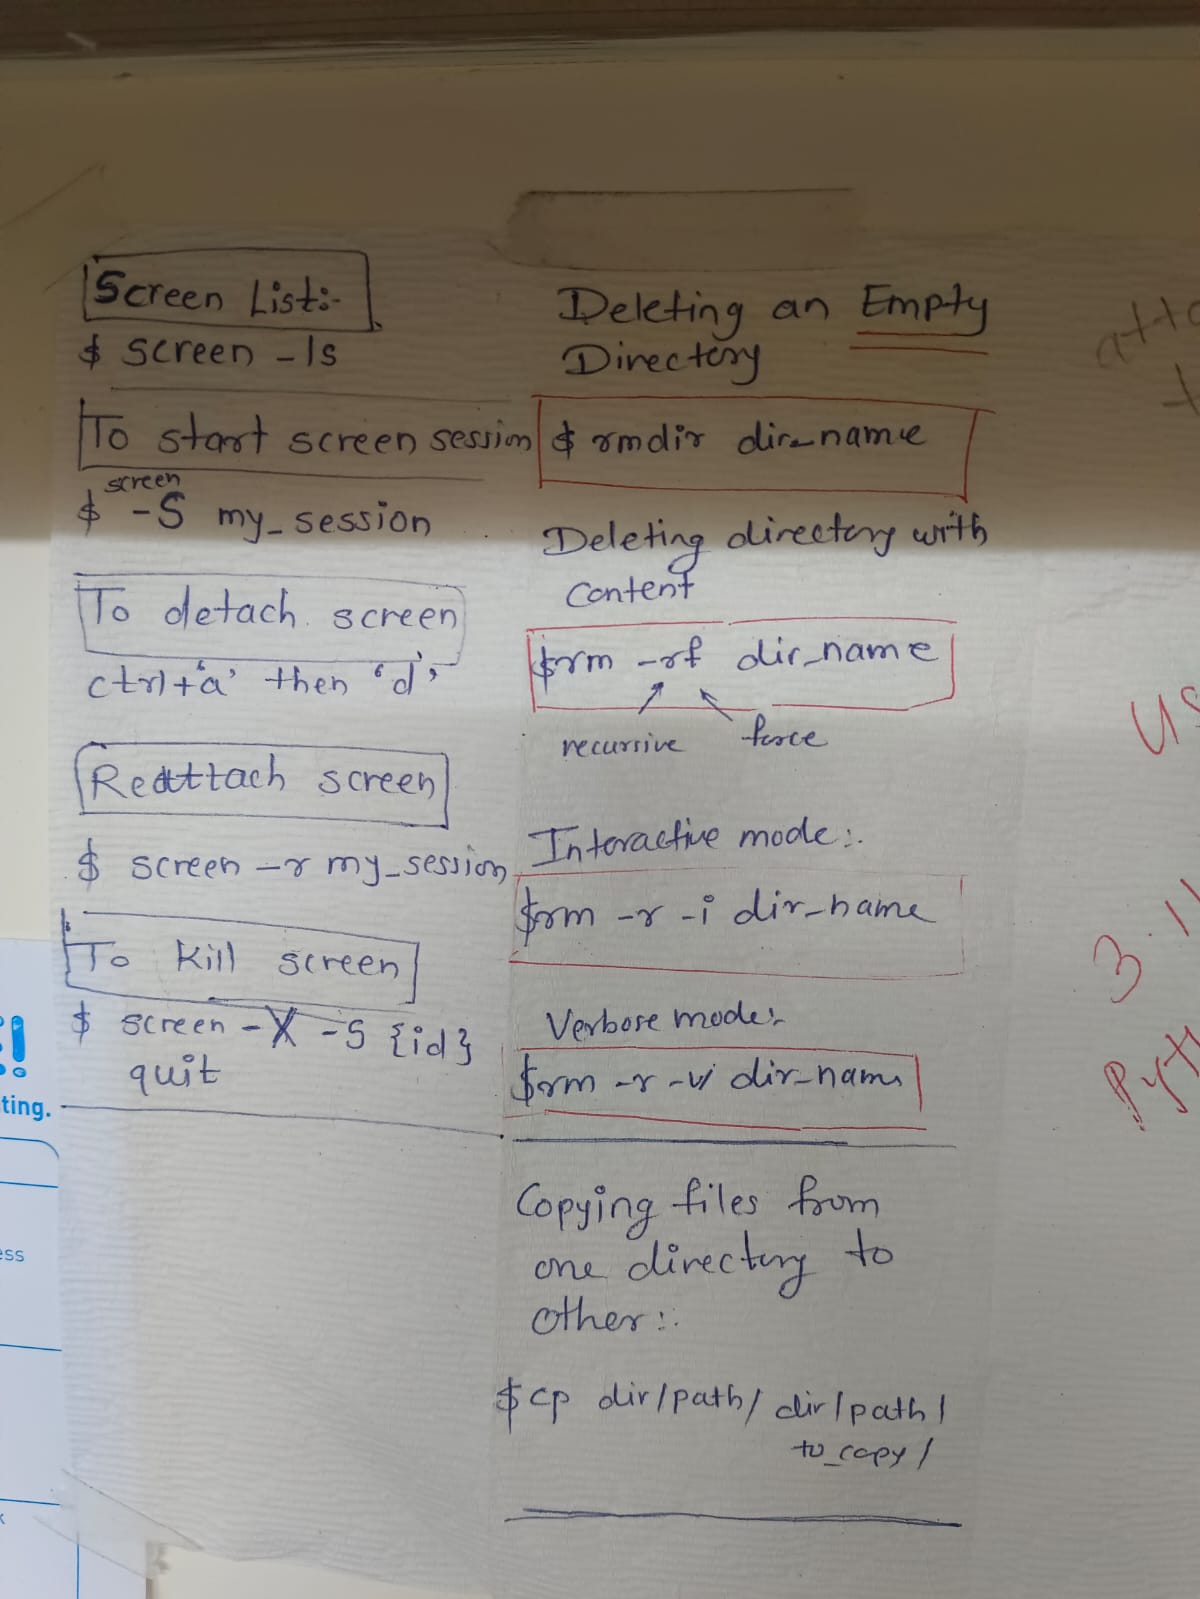 Screen List:-
$ screen -ls
To start screen session
screen
$ -S my_session
To detach screen
ctrl+'a' then 'd'
Reattach screen
$ screen -r my_session
To kill screen
$ screen -X -S {id}
quit
Deleting an Empty
Directory
$ rmdir dir_name
Deleting directory with
content
$rm -rf dir_name
recursive force
Interactive mode:.
$rm -r -i dir_name
Verbose mode:-
$rm -r -v dir_name
Copying files from
one directory to
other:.
$cp dir/path/ dir/path/
to_copy/
ting.
ess
atta
US
3.11
Pyt